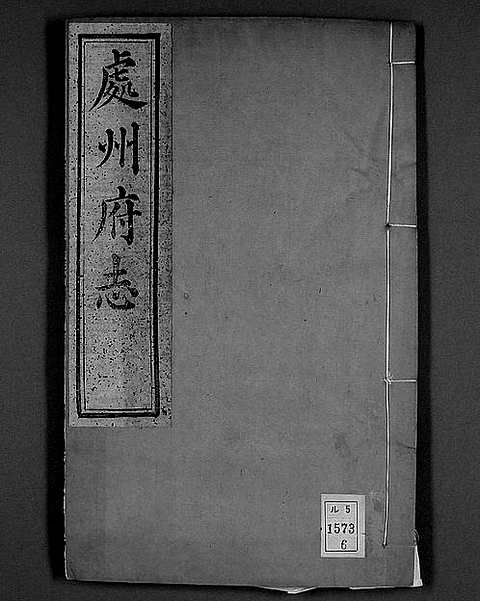 處州府志
ル5
1573
6